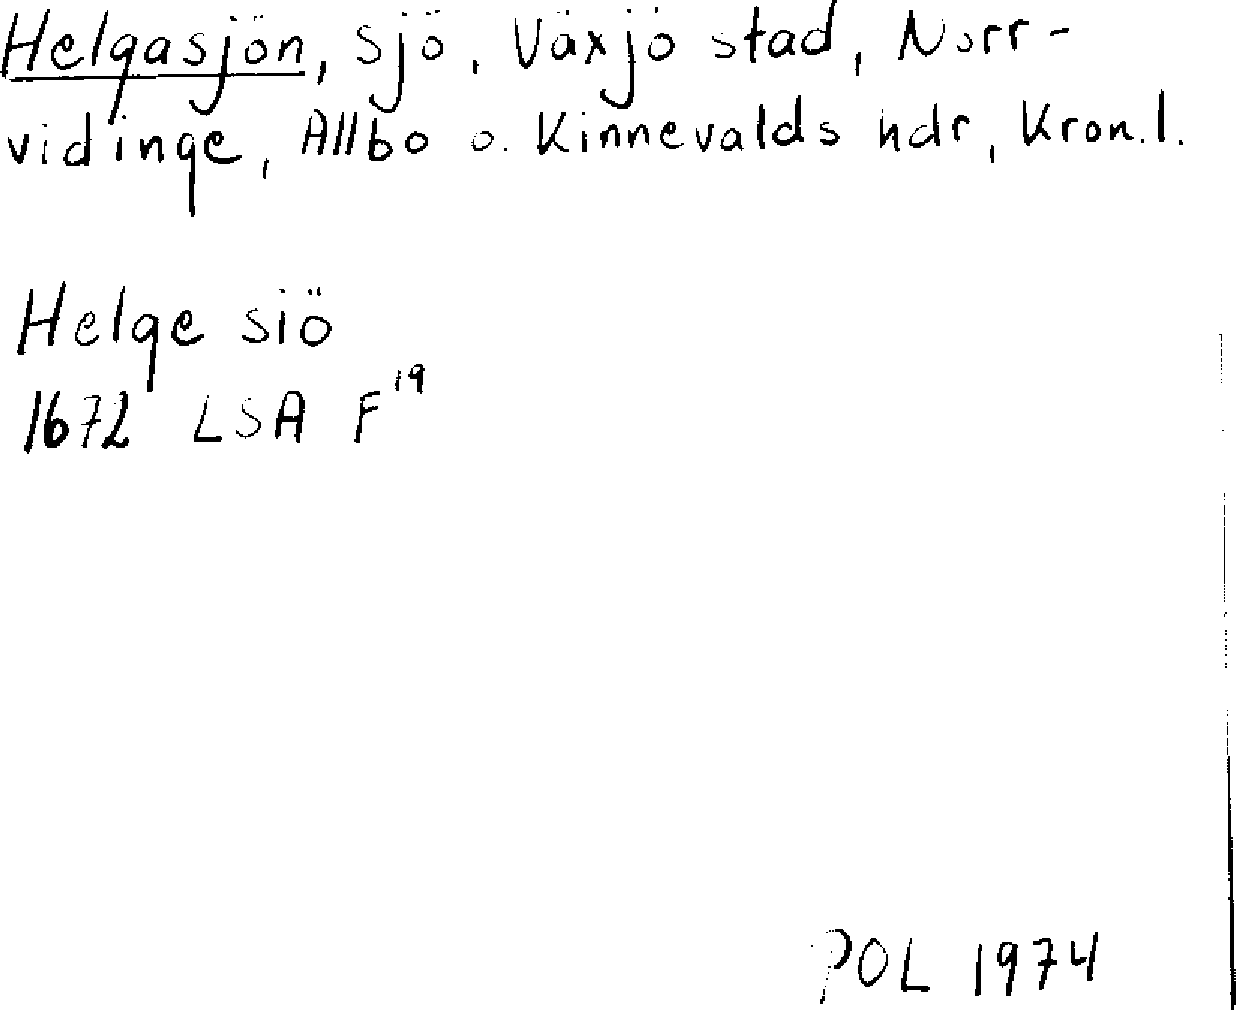 Helgasjön, sjö, Växjö stad, Norr-
vidinge, Allbo o. Kinnevalds hdr, Kron.l.
Helge siö
1672 LSA F19
POL 1974